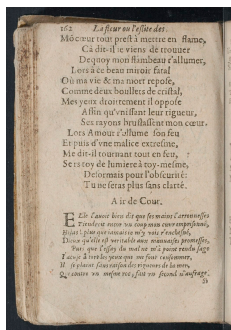 162 La fleur ou l'eslite des
Mõ cœur tout prest à mettre en flame,
Cà dit-il ie viens de trouuer
Dequoy mon flambeau r'allumer,
Lors à ce beau miroir fatal
Où ma vie & ma mort repose,
Comme deux boullets de cristal,
Mes yeux droittement il oppose
Affin qu'vnissant leur rigueur,
Ses rayons bruslassent mon cœur.
Lors Amour r'allume son feu
Et puis d'vne malice extresme,
Me dit-il tournant tout en feu,
Sers toy de lumiere à toy-mesme,
Desormais pour l'obscurité:
Tu ne seras plus sans clarté.
Air de Cour.
Elle l'auoit bien dit que ses mains
Tiendroit un mon cœur emprisonné,
Helas! plus que iamais ie m'y vois
Dieux qu'elle est veritable aux mauuaises promesses,
Puis que l'essay du mal ne m'a point rendu sage
I'ayde à les yeux qui me font consommer,
Ie des rigueurs de la mer,
contre un mesme roc, fait un second naufrage.